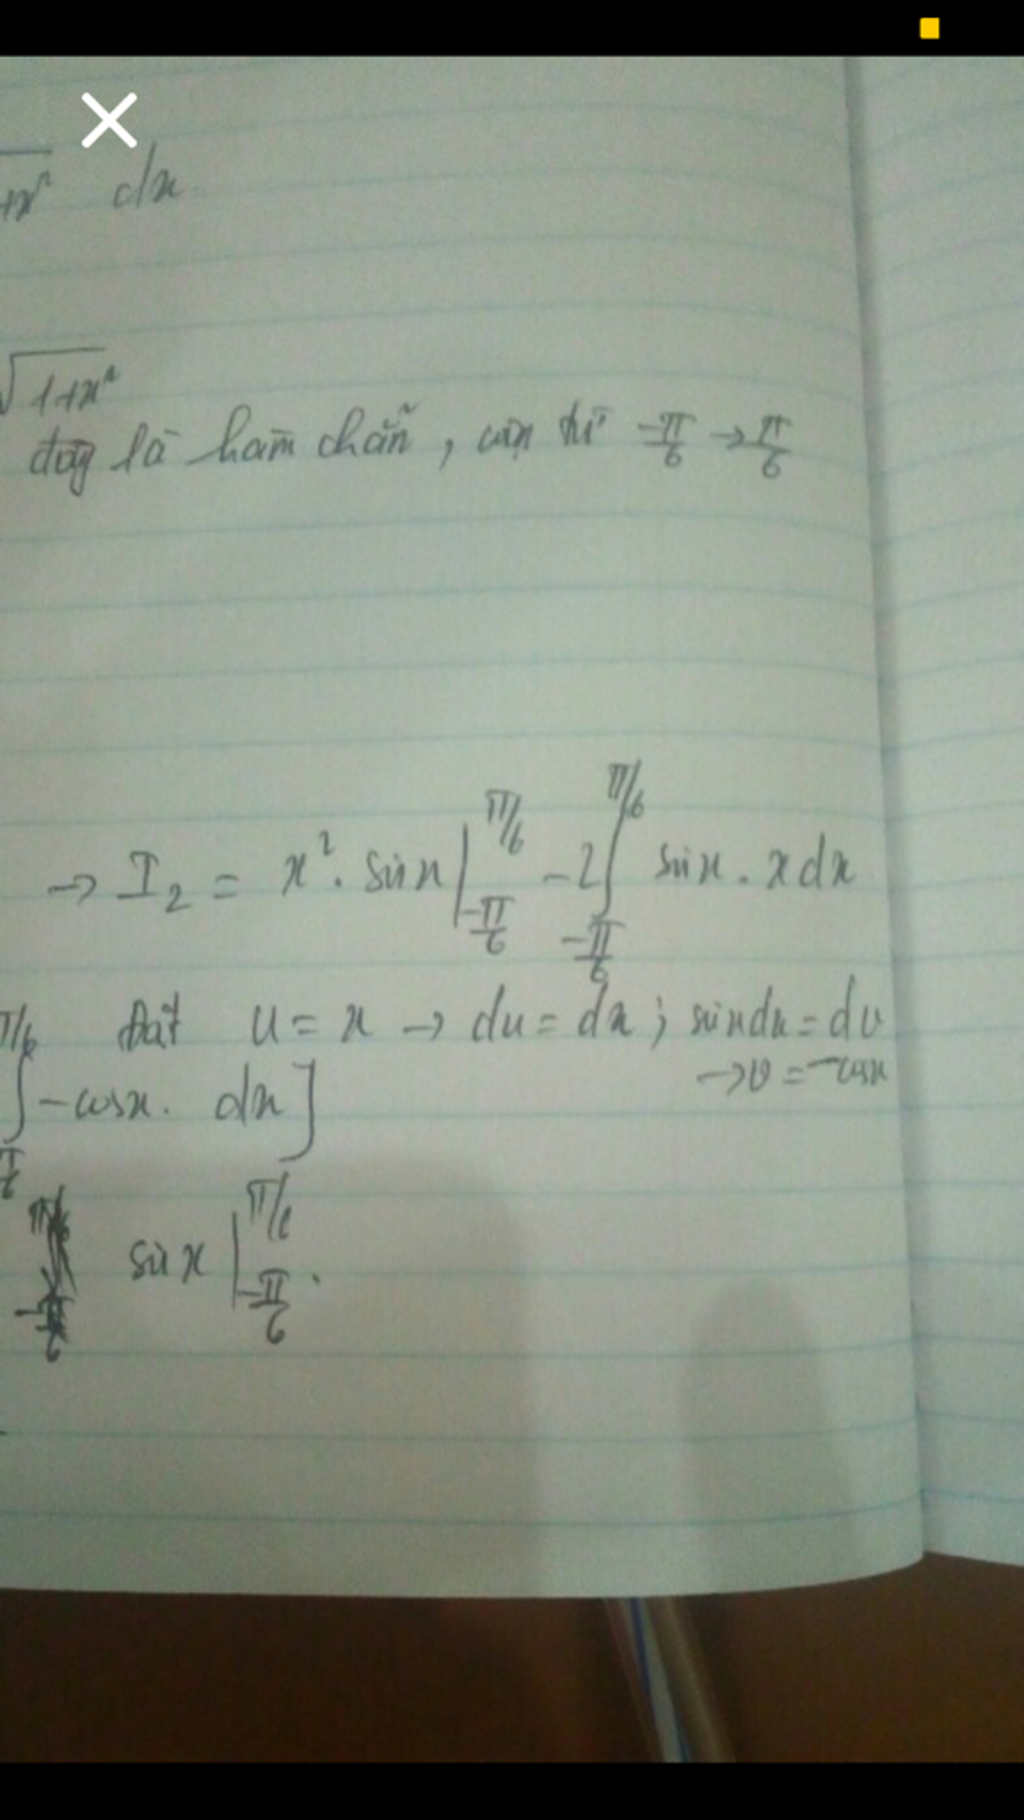 +x² dx
√1+x²
đây là hàm chẵn, cận từ -π/6 → π/6
→ I₂ = x². sinx |_{-π/6}^{π/6} - 2 ∫_{-π/6}^{π/6} sinx. x dx
π/6 Đặt u = x → du = dx ; sinxdx = dv
→ v = -cosx
∫ -cosx. dx ]
sin x |_{-π/6}^{π/6} .